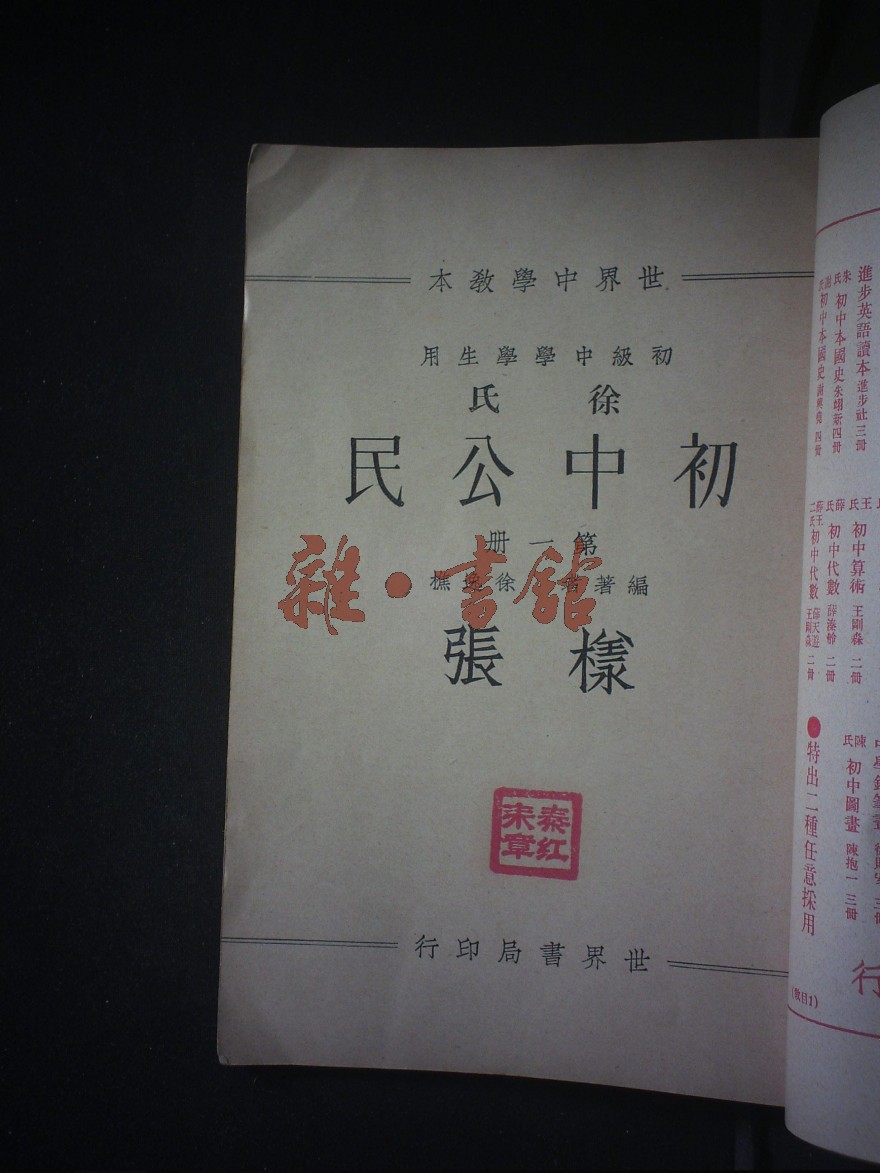 世界中學教本
初級中學學生用
徐氏
初中公民
第一册
編著者 徐逸樵
樣張
秦红
来章
世界書局印行
雜·書館
進步英語讀本 進步社 三冊
朱氏 初中本國史 朱翊新 四冊
初中本國史 謝興堯 四冊
王氏 初中算術 王剛森 二冊
薛氏 初中代數 二冊
初中代數 薛天遊 王剛森 二冊
陳氏 初中圖畫 陳抱一 三冊
●特出二種任意採用
行